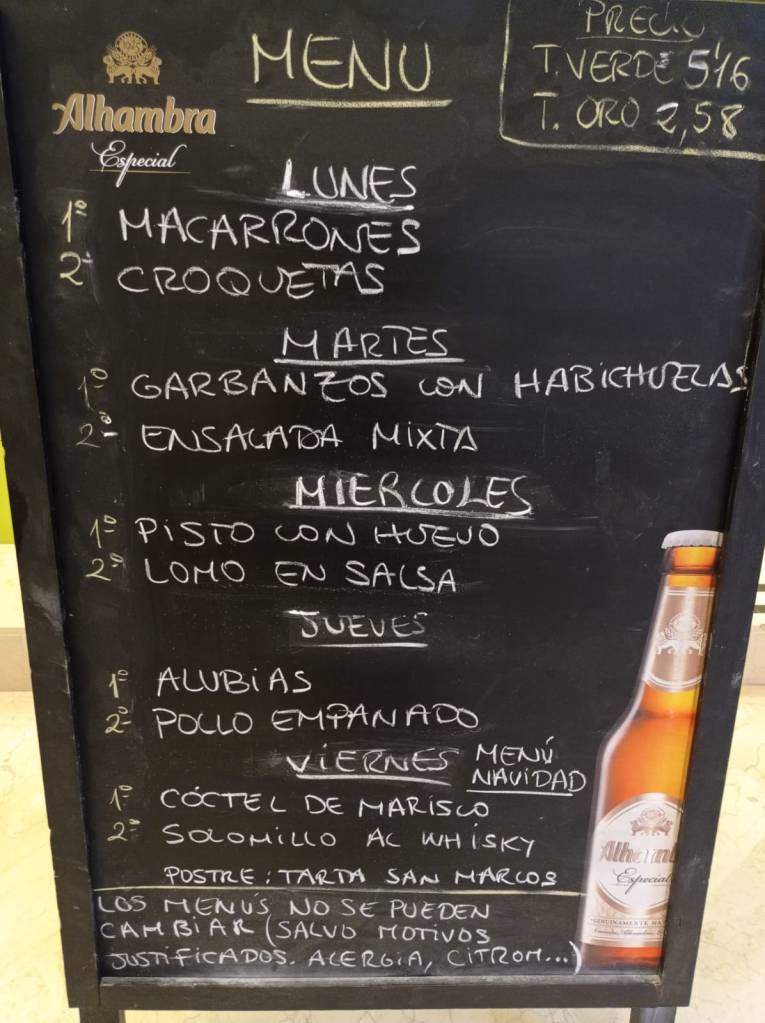 Alhambra
Especial
MENU
PRECIO
T. VERDE 5'16
T. ORO 2,58
LUNES
1º MACARRONES
2º CROQUETAS
MARTES
1º GARBANZOS CON HABICHUELAS
2º ENSALADA MIXTA
MIERCOLES
1º PISTO CON HUEVO
2º LOMO EN SALSA
JUEVES
1º ALUBIAS
2º POLLO EMPANADO
VIERNES MENÚ NAVIDAD
1º CÓCTEL DE MARISCO
2º SOLOMILLO AL WHISKY
POSTRE: TARTA SAN MARCOS
LOS MENÚS NO SE PUEDEN
CAMBIAR (SALVO MOTIVOS
JUSTIFICADOS. ALERGIA, CITROM...)
Alhamb
Especial
GENUINAMENTE